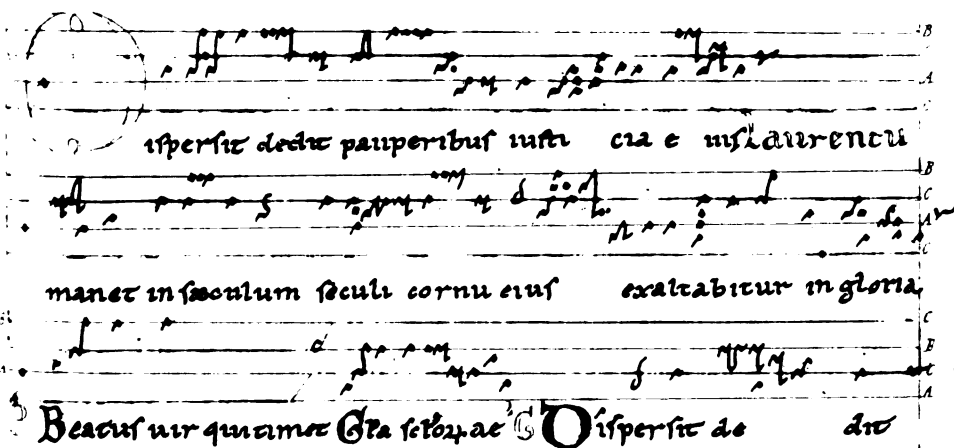 ispersit dedit pauperibus iusti cia e ius Laurentii
manet in sæculum seculi cornu eius exaltabitur in gloria
Beatus uir qui timet Gƚa Dispersit de dit